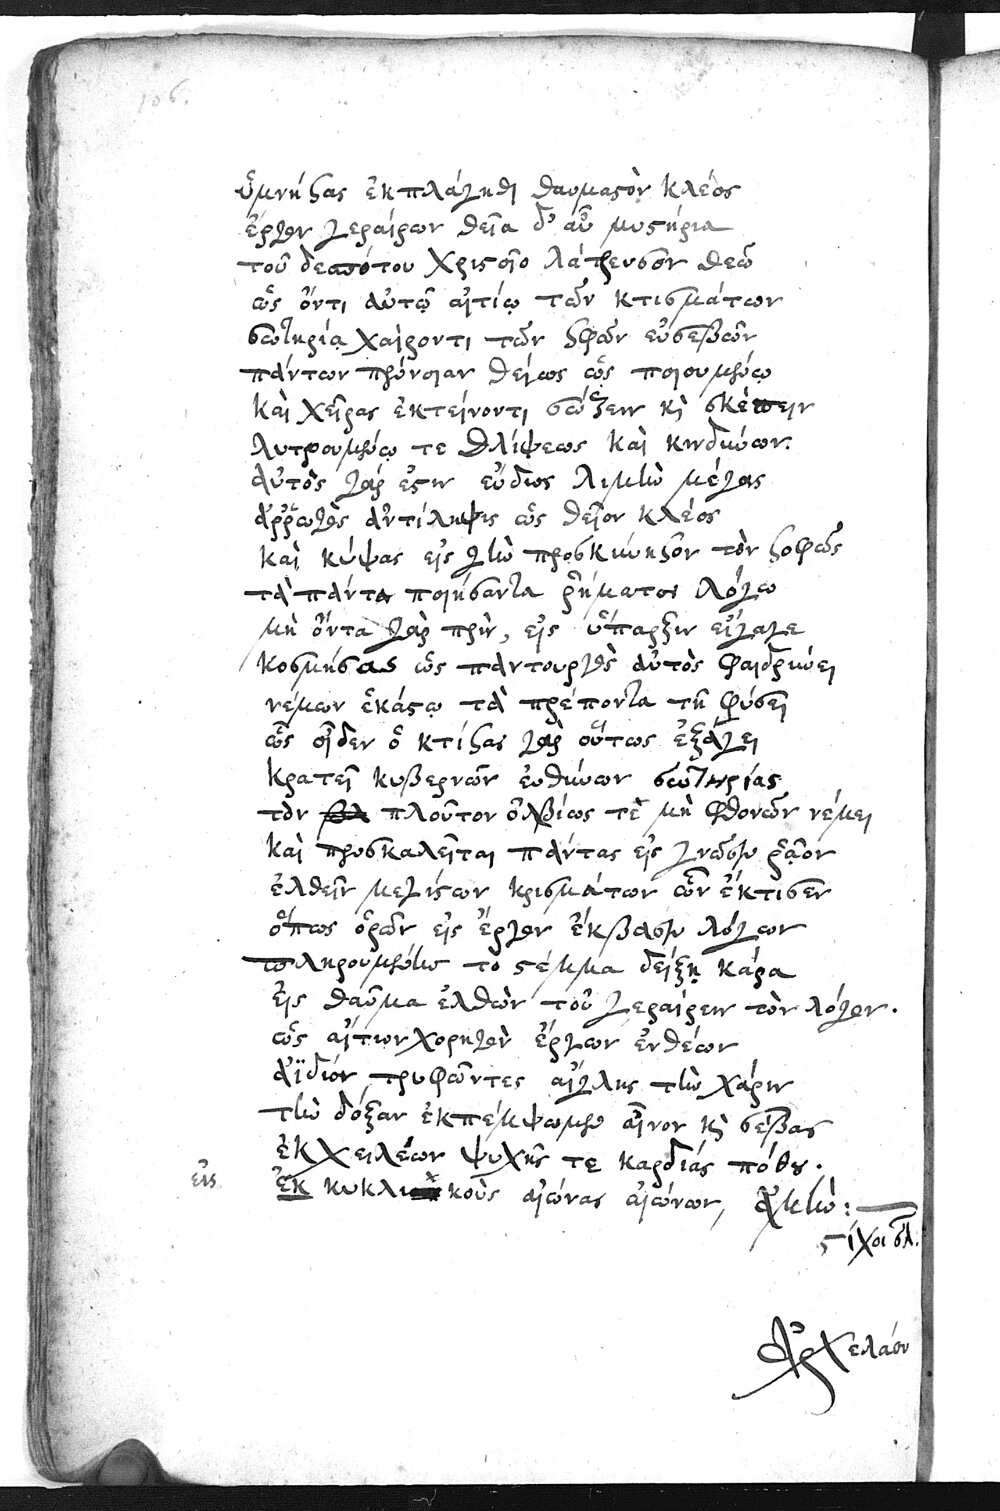 106.
ὑμνήσας ἐκπλάγηθι θαυμαστὸν κλέος
ἔργον γεραίρων θεῖα δ' αὖ μυστήρια
τοῦ δεσπότου Χριστοῖο λάτρευσον θεῷ
ὡς ὄντι αὐτῷ αἰτίῳ τῶν κτισμάτων
σωτηρίᾳ χαίροντι τῶν σφῶν εὐσεβῶν
πάντων πρόνοιαν θείως ὡς ποιουμένῳ
καὶ χεῖρας ἐκτείνοντι σώζειν κὶ σκέπειν
λυτρουμένῳ τε θλίψεως καὶ κινδύνων.
αὐτὸς γάρ ἐστιν εὔδιος λιμὴν μέγας
ἀρρωγὸς ἀντίληψις ὡς θεῖον κλέος
καὶ κύψας εἰς γῆν προσκύνησον τὸν σοφῶς
τὰ πάντα ποιήσαντα ῥήματος λόγῳ
μὴ ὄντα γὰρ πρὶν, εἰς ὕπαρξιν εἴγαγε
κοσμήσας ὡς παντουργὸς αὐτὸς φαιδρύνει
νέμων ἑκάστῳ τὰ πρέποντα τῇ φύσει
ὡς οἶδεν ὁ κτίσας γὰρ οὕτως ἐξάγει
κρατεῖ κυβερνῶν εὐθύνων σωτηρίας
τὸν πλοῦτον ὀλβίως τὲ μὴ φθονῶν νέμει
καὶ προσκαλεῖται πάντας εἰς γνῶσιν ῥᾷον
ἐλθεῖν μεγίστων κρισμάτων ὧν ἔκτισεν
ὅπως ὁρῶν εἰς ἔργον ἔκβασιν λόγων
πληρουμένην τὸ στέμμα δείξῃ κάρα
εἰς θαῦμα ἐλθὼν τοῦ γεραίρειν τὸν λόγον.
ὡς αἴτιον χορηγὸν ἔργων ἐνθέων
ἀΐδιόν τρυφῶντες αἴγλης τὴν χάριν
τὴν δόξαν ἐκπέμψωμεν αἶνον κὶ σέβας
ἐκ χειλέων ψυχῆς τε καρδιάς πόθου.
εἰς ἐκ κυκλικοὺς αἰώνας αἰώνων, ἀμήν:
στίχοι σλ.
Ἀρχελάου